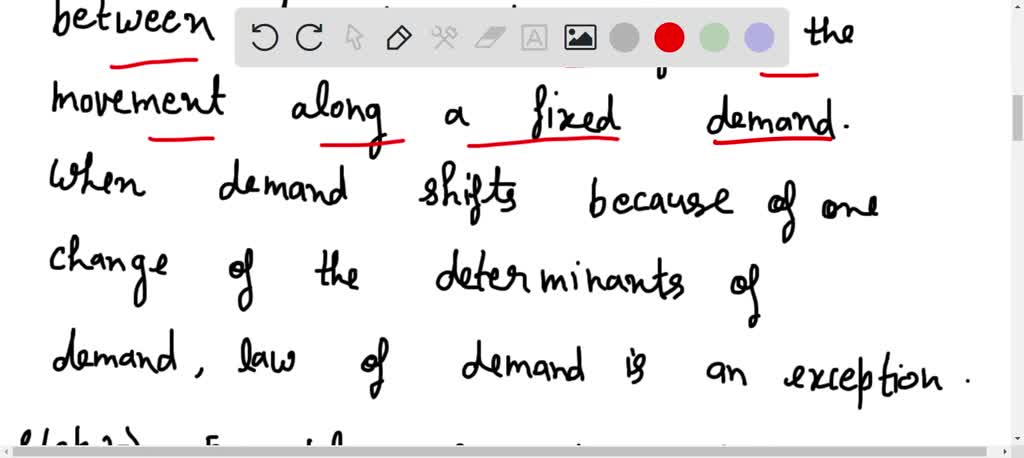 between the
movement along a fixed demand.
When demand shifts because of one
change of the determinants of
demand, law of demand is an exception.